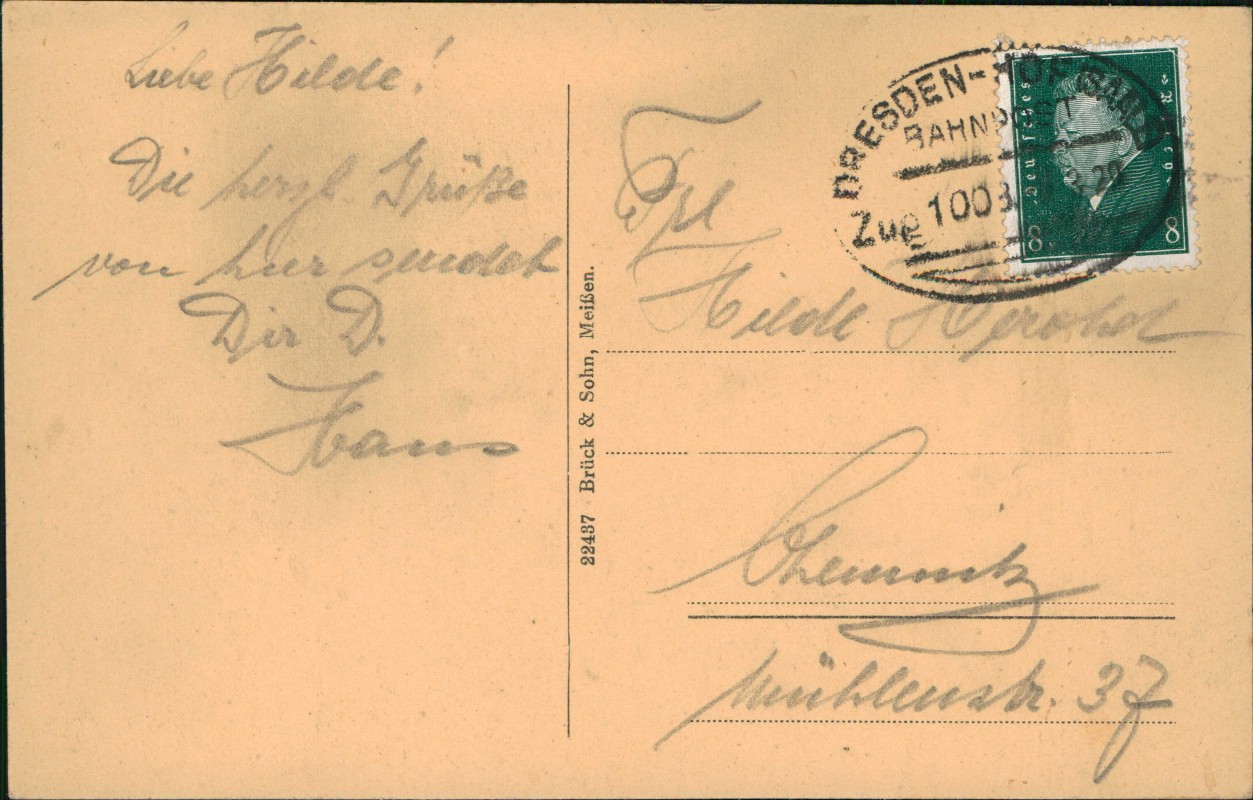 Liebe Hilde!
Die herzl. Grüße
von hier sendet
Dir D.
Hans
22437 Brück & Sohn, Meißen.
DRESDEN-HOF (SAALE)
BAHNPOST
Zug 1003
29
Deutsches Reich
8 8
Frl
Hilde
Chemnitz
Mühlenstr. 37